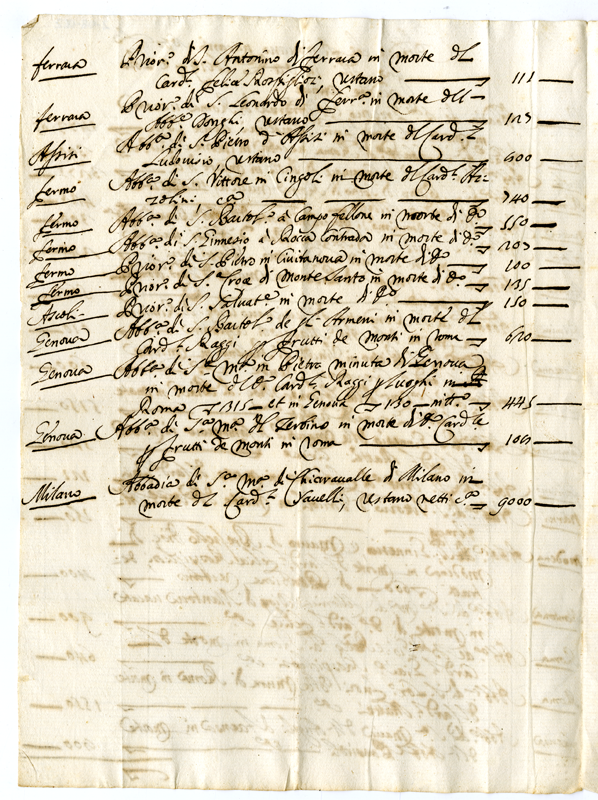 ferrara Prior.º di S. Antonino di ferrara in morte del
Card.l felice Rospigliosi, restano 111
ferrara Prior.º di S. Leonardo di ferr.ª in morte dell
Abb.e Bonghi, restano 123
Assisi Abb.ª di S. Pietro d'Assisi in morte del Card.l
Ludovisio restano 600
fermo Abb.ª di S. Vittore in Cingoli in morte del Card.l Az-
zolini c.ª 740
fermo Abb.ª di S. Bartol.º à Campo fellone in morte di d.º 550
fermo Abb.ª di S. Ginnesio à Rocca Contrada in morte di d.º 203
fermo Prior.º di S. Pietro in Civitanova in morte di d.º 100
fermo Prior. di S.ª Croce di Monte Santo in morte di d.º 135
Ascoli Prior.º di S. Salvat.e in morte di d.º 150
Genova Abb.ª di S. Bartol.º de gl'Armeni in morte del
Card.l Raggi frutti de monti in roma 620
Genova Abb.ª di S.ª M.ª in Pietra minuta di Genova
in morte del d.º Card.l Raggi luoghi in
Roma 315 et in Genova 130 445
Genova Abb.ª di S.ª M.ª del Zerbino in morte di d.º Card.le
frutti de monti in roma 100
Milano Abbadia di S.ª M.ª di Chiaravalle di Milano in
morte del Card.l Savelli, restano netti c.ª 9000